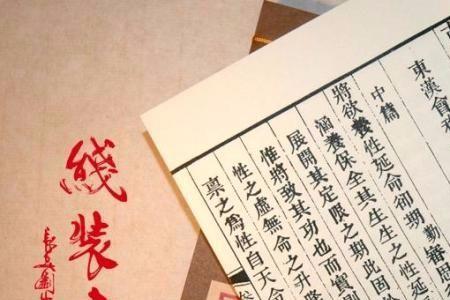 東漢會
中篇
將欲養性延命卻期
涵養保全其生生之性
展開其定限之期此固
惟將致其功也而實
性之虛無命之升
禀之為性自天命
綫裝